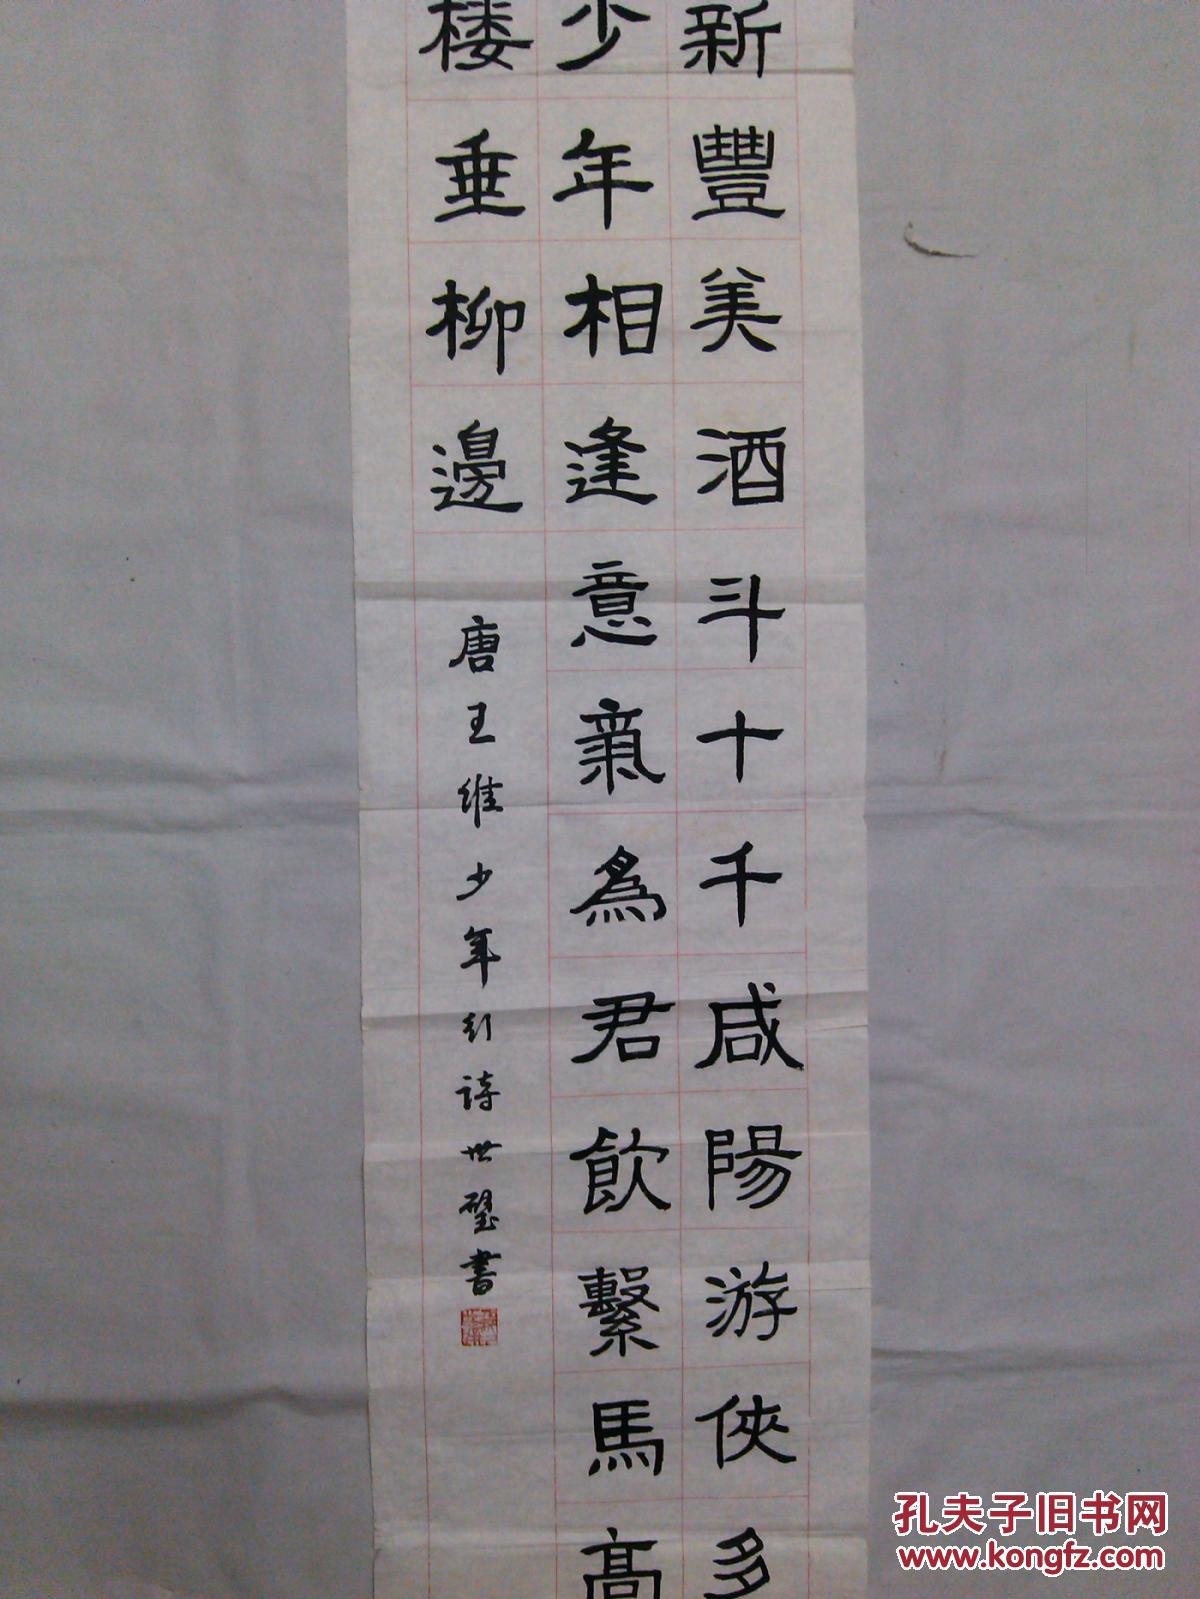 新豐美酒斗十千咸陽游俠多
少年相逢意氣為君飲繫馬高
楼垂柳邊
唐王維少年行詩世璧書
孔夫子旧书网
www.kongfz.com